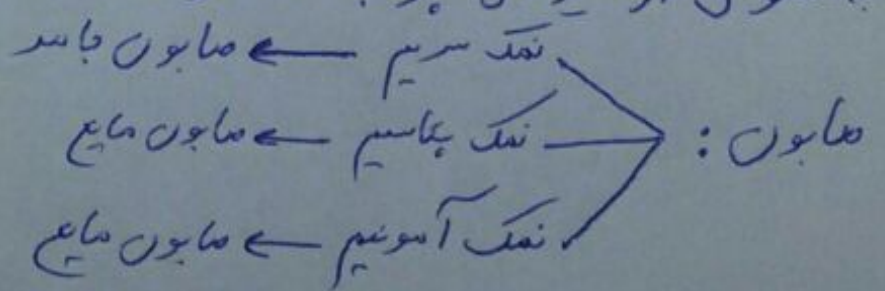 نمک سدیم ← صابون جامد
صابون : نمک پتاسیم ← صابون مایع
نمک آمونیم ← صابون مایع